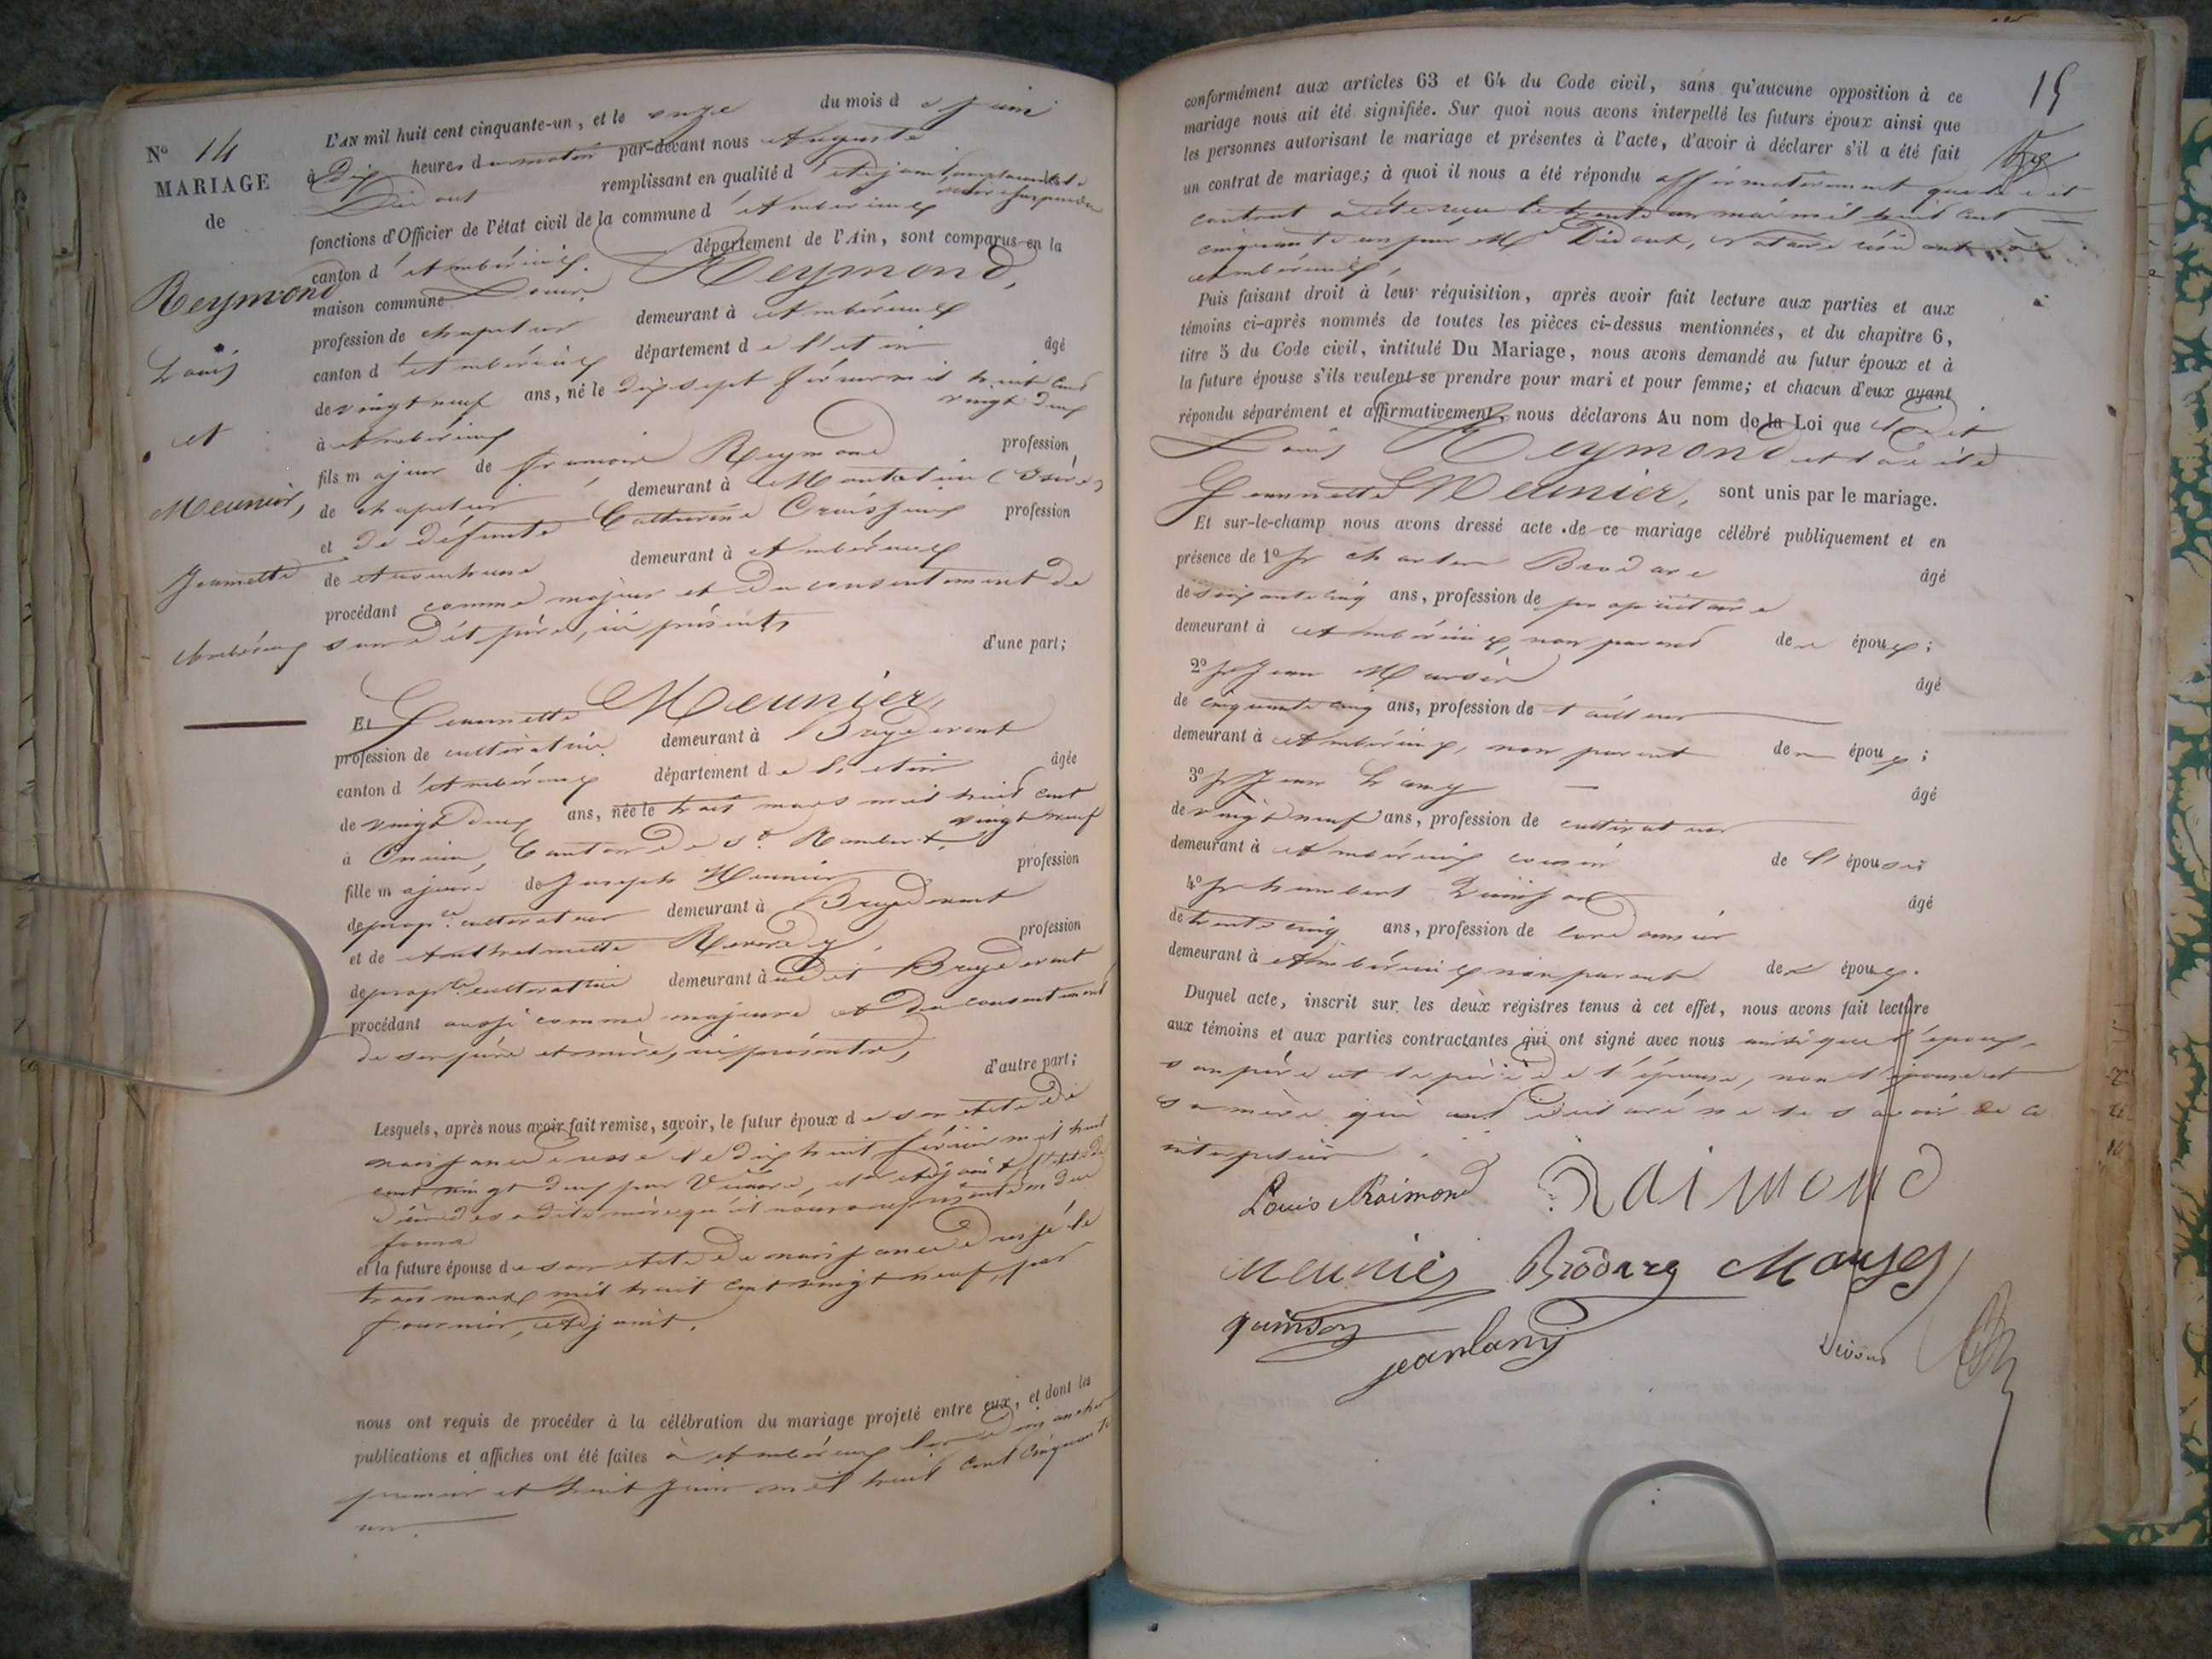 N° 14
MARIAGE
de
Reymond
Louis
et
Meunier,
Jeannette
Ambérieux
L'AN mil huit cent cinquante-un, et le onze du mois de Juin
à Dix heures du matin par-devant nous Auguste
Didout remplissant en qualité d'Adjoint
fonctions d'Officier de l'état civil de la commune d'Ambérieux
canton d'Ambérieux département de l'Ain, sont comparus en la
maison commune Louis Reymond,
profession de chapelier demeurant à Ambérieux
canton d'Ambérieux département de l'Ain âgé
de vingt neuf ans, né le Dix sept février mil huit cent
vingt deux
à Ambérieux
fils majeur de François Reymond profession
de chapelier demeurant à (Isère)
et de défunte Catherine profession
de demeurant à Ambérieux
procédant comme majeur et du consentement de
son dit père, ici présent, d'une part;
Et Jeannette Meunier,
profession de cultivatrice demeurant à
canton d'Ambérieux département de l'Ain âgée
de vingt deux ans, née le trois mars mil huit cent
vingt neuf
à Oncieu, Canton de St. Rambert,
fille majeure de Joseph Meunier profession
de propre. cultivateur demeurant à
et de profession
de propre. cultivatrice demeurant audit
procédant aussi comme majeure et du consentement
de ses père et mère, ici présents, d'autre part;
Lesquels, après nous avoir fait remise, savoir, le futur époux de son acte de
naissance dressé le dix huit février mil huit
cent vingt deux par Adjoint, l'acte de
décès de sa dite mère qu'il nous a
forme
et la future épouse de son acte de naissance dressé le
trois mars mil huit cent vingt neuf, par
fournier, Adjoint.
nous ont requis de procéder à la célébration du mariage projeté entre eux, et dont les
publications et affiches ont été faites à Ambérieux les dimanches
premier et huit Juin mil huit cent cinquante
un.
15
conformément aux articles 63 et 64 du Code civil, sans qu'aucune opposition à ce
mariage nous ait été signifiée. Sur quoi nous avons interpellé les futurs époux ainsi que
les personnes autorisant le mariage et présentes à l'acte, d'avoir à déclarer s'il a été fait
un contrat de mariage; à quoi il nous a été répondu affirmativement que le dit
contrat a été reçu le trente un mai mil huit cent
cinquante un par Me Didout, Notaire résidant à
Ambérieux,
Puis faisant droit à leur réquisition, après avoir fait lecture aux parties et aux
témoins ci-après nommés de toutes les pièces ci-dessus mentionnées, et du chapitre 6,
titre 5 du Code civil, intitulé Du Mariage, nous avons demandé au futur époux et à
la future épouse s'ils veulent se prendre pour mari et pour femme; et chacun d'eux ayant
répondu séparément et affirmativement, nous déclarons Au nom de la Loi que ledit
Louis Reymond et ladite
Jeannette Meunier, sont unis par le mariage.
Et sur-le-champ nous avons dressé acte de ce mariage célébré publiquement et en
présence de 1° Sr Charles Brodare âgé
de soixante cinq ans, profession de propriétaire
demeurant à Ambérieux, non parent des époux;
2° Sr Jean âgé
de cinquante cinq ans, profession de tailleur
demeurant à Ambérieux, non parent des époux;
3° Sr Jean Lany âgé
de vingt neuf ans, profession de cultivateur
demeurant à Ambérieux cousin de l'épouse
4° Sr humbert âgé
de trente cinq ans, profession de cordonnier
demeurant à Ambérieux non parent des époux.
Duquel acte, inscrit sur les deux registres tenus à cet effet, nous avons fait lecture
aux témoins et aux parties contractantes qui ont signé avec nous ainsi que l'époux,
son père et le père de l'épouse, non l'épouse et
sa mère qui ont déclaré ne le savoir de ce
Louis Raimond Raimond
Meunier Brodare
quinson
jean lany
Didout